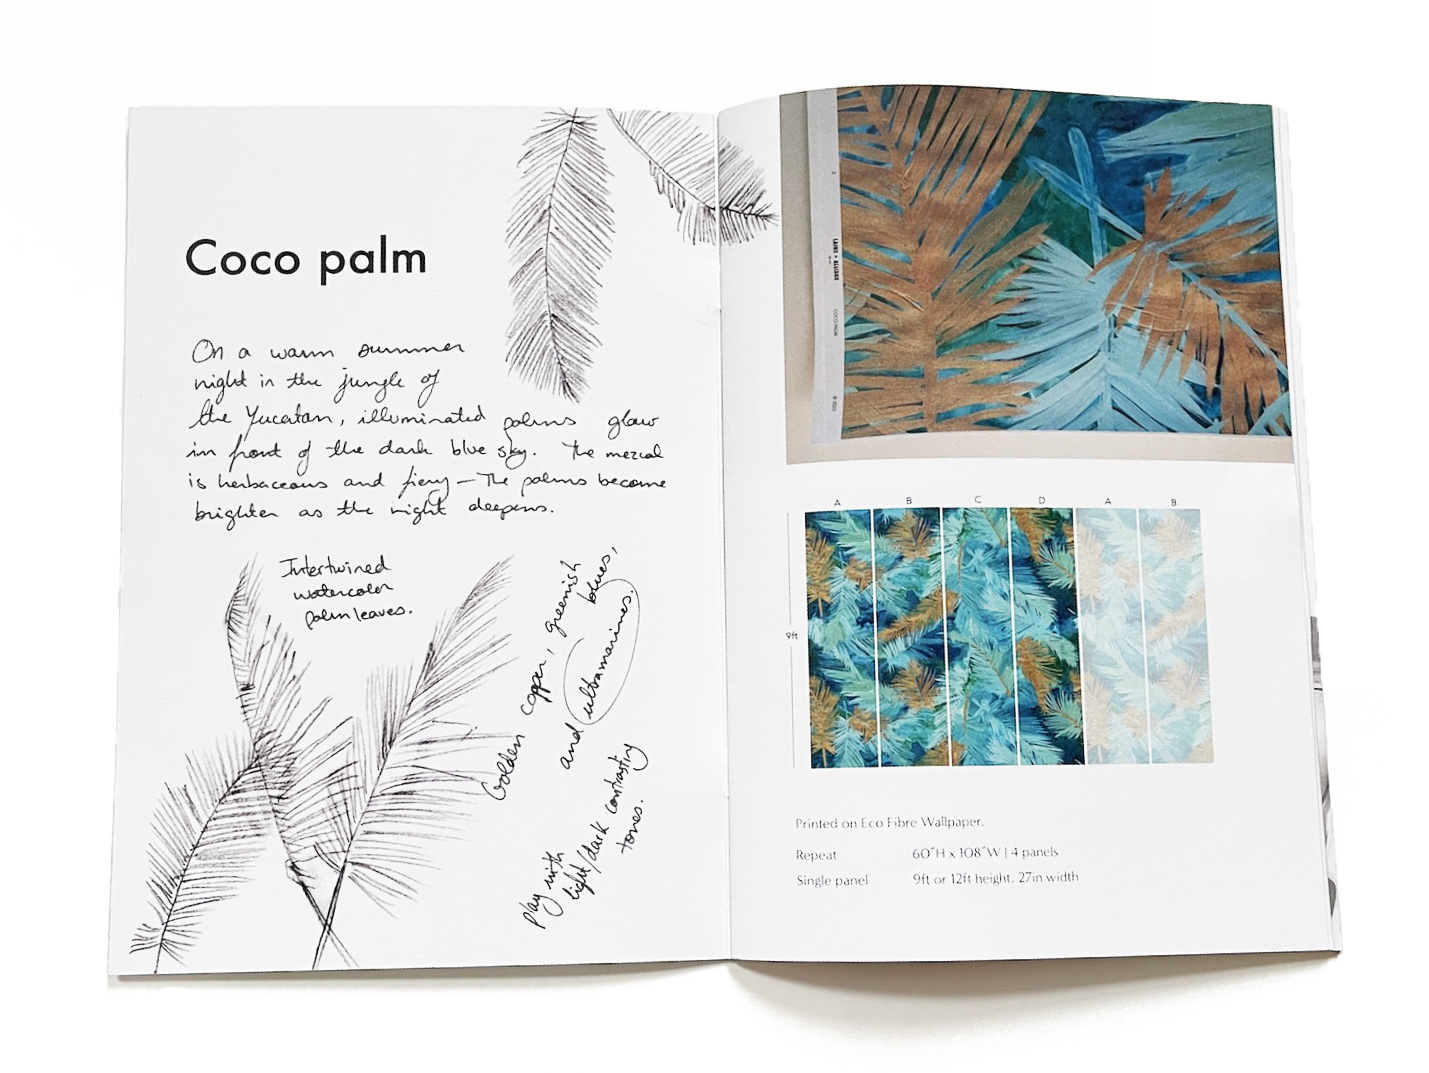 Coco palm
On a warm summer
night in the jungle of
the Yucatan, illuminated palms glow
in front of the dark blue sky. The mezcal
is herbaceous and fiery — The palms become
brighter as the night deepens.
Intertwined
watercolor
palm leaves.
Golden copper, greenish blues,
and ultramarines.
Play with
light/dark contrasting
tones.
2
COCO PALM
© 2023
A B C D A B
9ft
Printed on Eco Fibre Wallpaper.
Repeat 60"H x 108"W | 4 panels
Single panel 9ft or 12ft height. 27in width